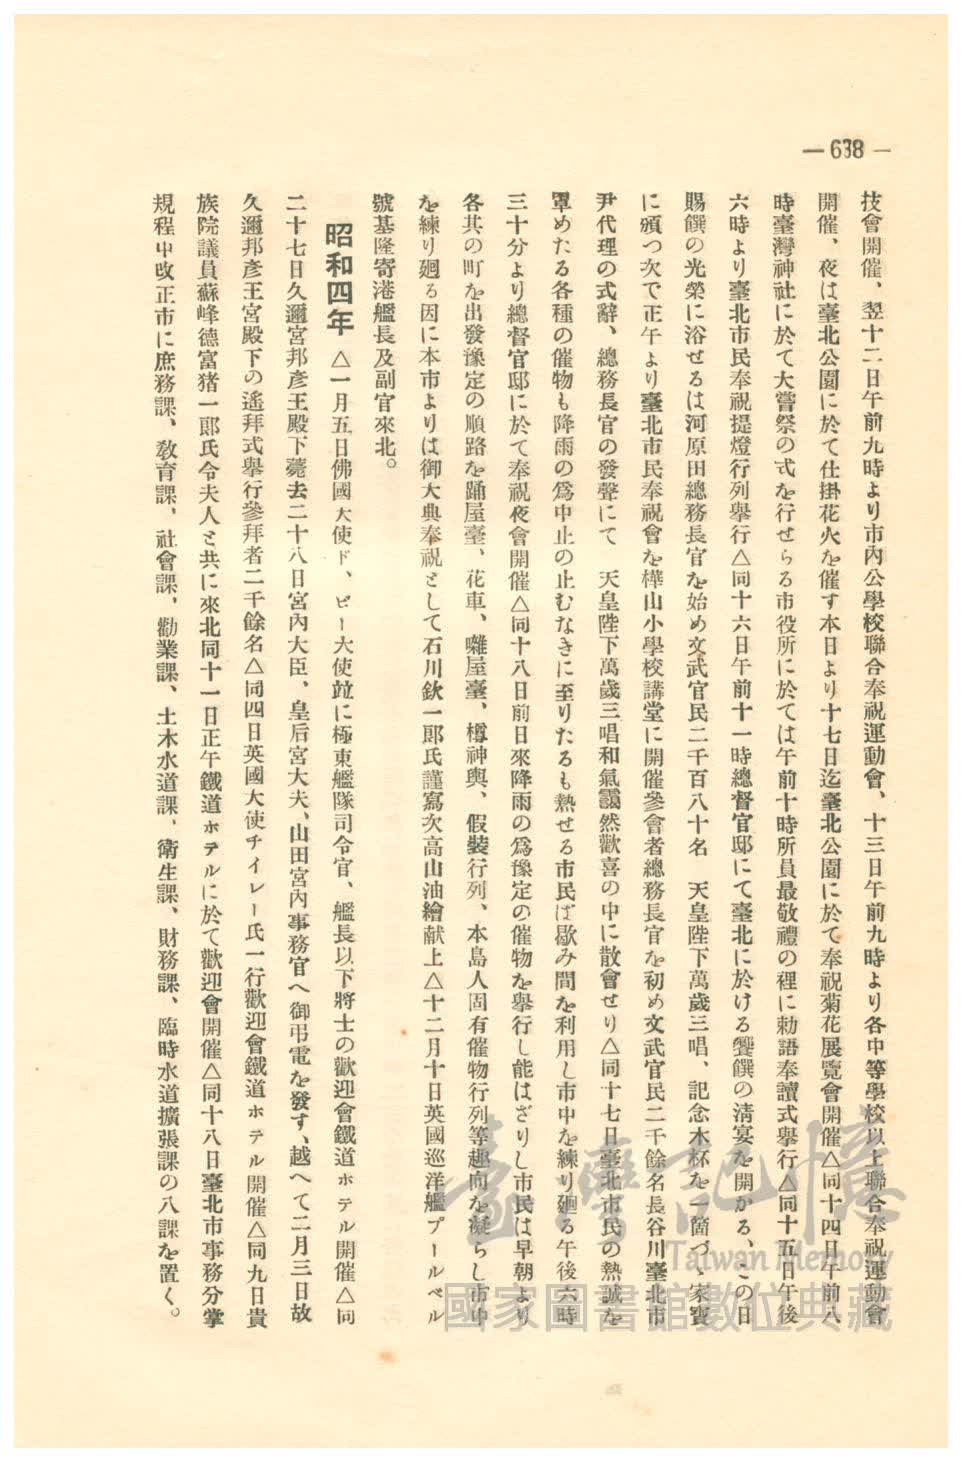 — 638 —
技會開催、翌十二日午前九時より市內公學校聯合奉祝運動會、十三日午前九時より各中等學校以上聯合奉祝運動會
開催、夜は臺北公園に於て仕掛花火を催す本日より十七日迄臺北公園に於て奉祝菊花展覽會開催△同十四日午前八
時臺灣神社に於て大嘗祭の式を行せらる市役所に於ては午前十時所員最敬禮の裡に勅語奉讀式擧行△同十五日午後
六時より臺北市民奉祝提燈行列擧行△同十六日午前十一時總督官邸にて臺北に於ける饗饌の淸宴を開かる、この日
賜饌の光榮に浴せるは河原田總務長官を始め文武官民二千百八十名　天皇陛下萬歲三唱、記念木杯を一箇づゝ家寶
に頒つ次で正午より臺北市民奉祝會を樺山小學校講堂に開催參會者總務長官を初め文武官民二千餘名長谷川臺北市
尹代理の式辭、總務長官の發聲にて　天皇陛下萬歲三唱和氣靄然歡喜の中に散會せり△同十七日臺北市民の熱誠を
罩めたる各種の催物も降雨の爲中止の止むなきに至りたるも熱せる市民は歇み間を利用し市中を練り廻る午後六時
三十分より總督官邸に於て奉祝夜會開催△同十八日前日來降雨の爲豫定の催物を擧行し能はざりし市民は早朝より
各其の町を出發豫定の順路を踊屋臺、花車、囃屋臺、樽神輿、假裝行列、本島人固有催物行列等趣向を凝らし市中
を練り廻る因に本市よりは御大典奉祝として石川欽一郎氏謹寫次高山油繪献上△十二月十日英國巡洋艦プールベル
號基隆寄港艦長及副官來北。
昭和四年　△一月五日佛國大使ド、ビー大使竝に極東艦隊司令官、艦長以下將士の歡迎會鐵道ホテル開催△同
二十七日久邇宮邦彥王殿下薨去二十八日宮內大臣、皇后宮大夫、山田宮內事務官へ御弔電を發す、越へて二月三日故
久邇邦彥王宮殿下の遙拜式擧行參拜者二千餘名△同四日英國大使チイレー氏一行歡迎會鐵道ホテル開催△同九日貴
族院議員蘇峰德富猪一郎氏令夫人と共に來北同十一日正午鐵道ホテルに於て歡迎會開催△同十八日臺北市事務分掌
規程中改正市に庶務課、敎育課、社會課、勸業課、土木水道課、衛生課、財務課、臨時水道擴張課の八課を置く。
臺灣記憶
Taiwan Memory
國家圖書館數位典藏